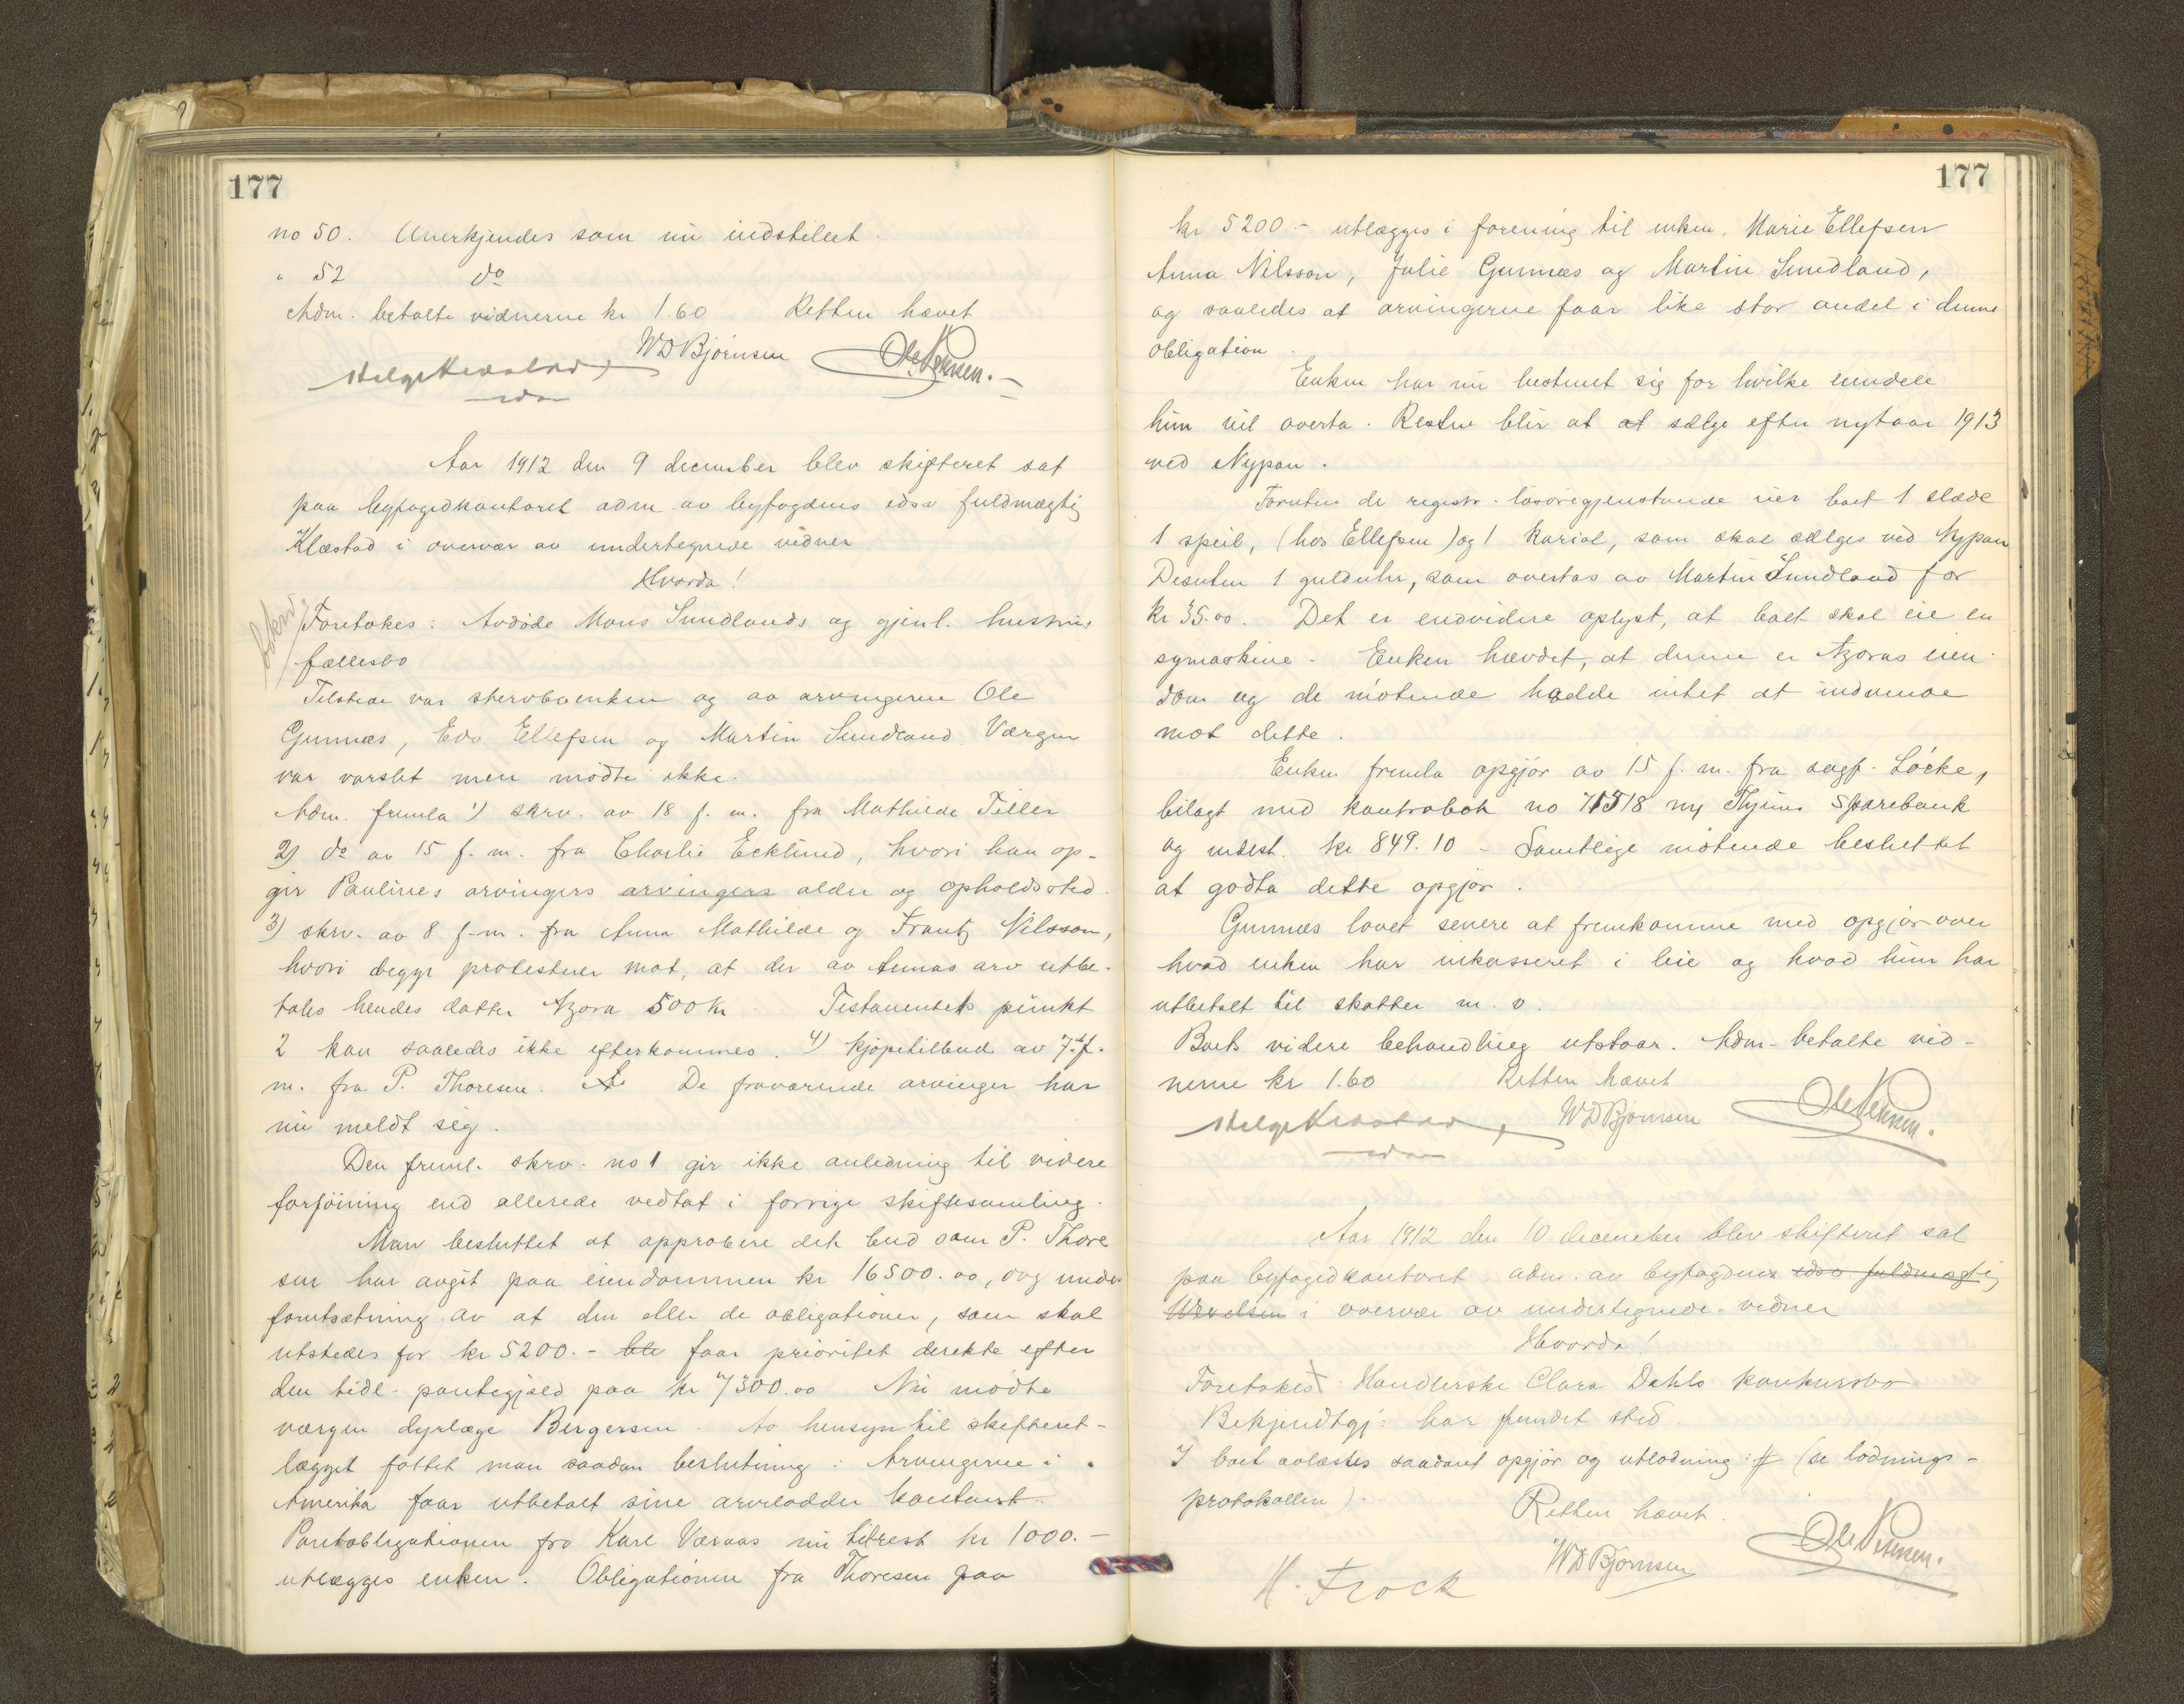 177
no 50. Anerkjendes som nu indstillet.
" 52 do
Adm. betalte vidnerne kr 1.60 Retten hævet
WD Bjørnsen Ole Petersen.
edsv

Aar 1912 den 9 december blev skifteret sat
paa byfogedkontoret adm av byfogdens edsv fuldmægtig
Klæstad i overvær av undertegnede vidner
Hvorda!
Foretokes: Avdøde Mons Sundlands og gjenl. hustrus
fællesbo
Tilstede var stervboenken og av arvingerne Ole
Gunnæs, Edv Ellefsen og Martin Sundland. Værgen
var varslet men mødte ikke.
Adm. fremla 1) skrv. av 18 f. m. fra Mathilde Tiller
2) do av 15 f. m. fra Charlie Ecklund, hvori han op-
gir Paulines arvingers arvingers alder og opholdssted.
3) skrv. av 8 f. m. fra Anna Mathilde og Frantz Nilsson,
hvori begge protesterer mot, at der av Annas arv utbe-
tales hendes datter Azora 500 kr. Testamentets punkt
2 kan saaledes ikke efterkommes. 4) kjøpetilbud av 7. f.
m. fra P. Thoresen. De fraværende arvinger har
nu meldt sig.
Den freml. skrv. no 1 gir ikke anledning til videre
forføining end allerede vedtat i forrige skiftesamling.
Man besluttet at approbere det bud som P. Thore
sen har avgit paa eiendommen kr 16500.00, og under
forutsætning av at den eller de obligationer, som skal
utstedes for kr 5200.- blir faar prioritet derekte efter
den tidl. pantegjæld paa kr 7300.00 Nu mødte
værgen dyrlæge Bergersen. Av hensyn til skifteut-
lægget fattet man saadan beslutning: Arvingerne i
Amerika faar utbetalt sine arvelodder kontant.
Pantobligationen fra Karl Væraas nu tilrest kr 1000.-
utlægges enken. Obligationen fra Thoresen paa
177
kr 5200.- utlægges i forening til enken, Marie Ellefsen
Anna Nilsson, Julie Gunnæs og Martin Sundland,
og saaledes at arvingerne faar like stor andel i denne
obligation.
Enken har nu bestemt sig for hvilke eiendele
hun vil overta. Resten blir at at sælge efter nytaar 1913
ved Nypan.
Foruten de registr. løsøregjenstande eier boet 1 slæde
1 speil, (hos Ellefsen) og 1 Kariol, som skal sælges ved Nypan
Desuten 1 gulduhr, som overtas av Martin Sundland for
kr 35.00. Det er endvidere oplyst, at boet skal eie en
symaskine. Enken hævdet, at denne er Azoras eien-
dom og de møtende hadde intet at indvende
mot dette.
Enken fremla opgjør av 15 f. m. fra sagf. Løcke,
bilagt med kontrabok no 71518 ny Thjems Sparebank
og indest. kr 849.10 - Samtlige møtende besluttet
at godta dette opgjør.
Gunnæs lovet senere at fremkomme med opgjør over
hvad enken har inkasseret i leie og hvad hun har
utbetalt til skatter m. v.
Boets videre behandling utstaar. Adm. betalte vid-
nerne kr 1.60 Retten hævet
WD Bjørnsen Ole Petersen.
edsv

Aar 1912 den 10 december blev skifteret sat
paa byfogedkontoret adm. av byfogden edsv fuldmægtig
i overvær av undertegnede vidner
Hvorda!
Foretokes: Handlerske Clara Dahls konkursbo
Bekjendtgj: har fundet sted
I boet avlæstes saadant opgjør og utlodning: (se lodnings-
protokollen).
Retten hævet.
H. Frock WD Bjørnsen Ole Petersen.